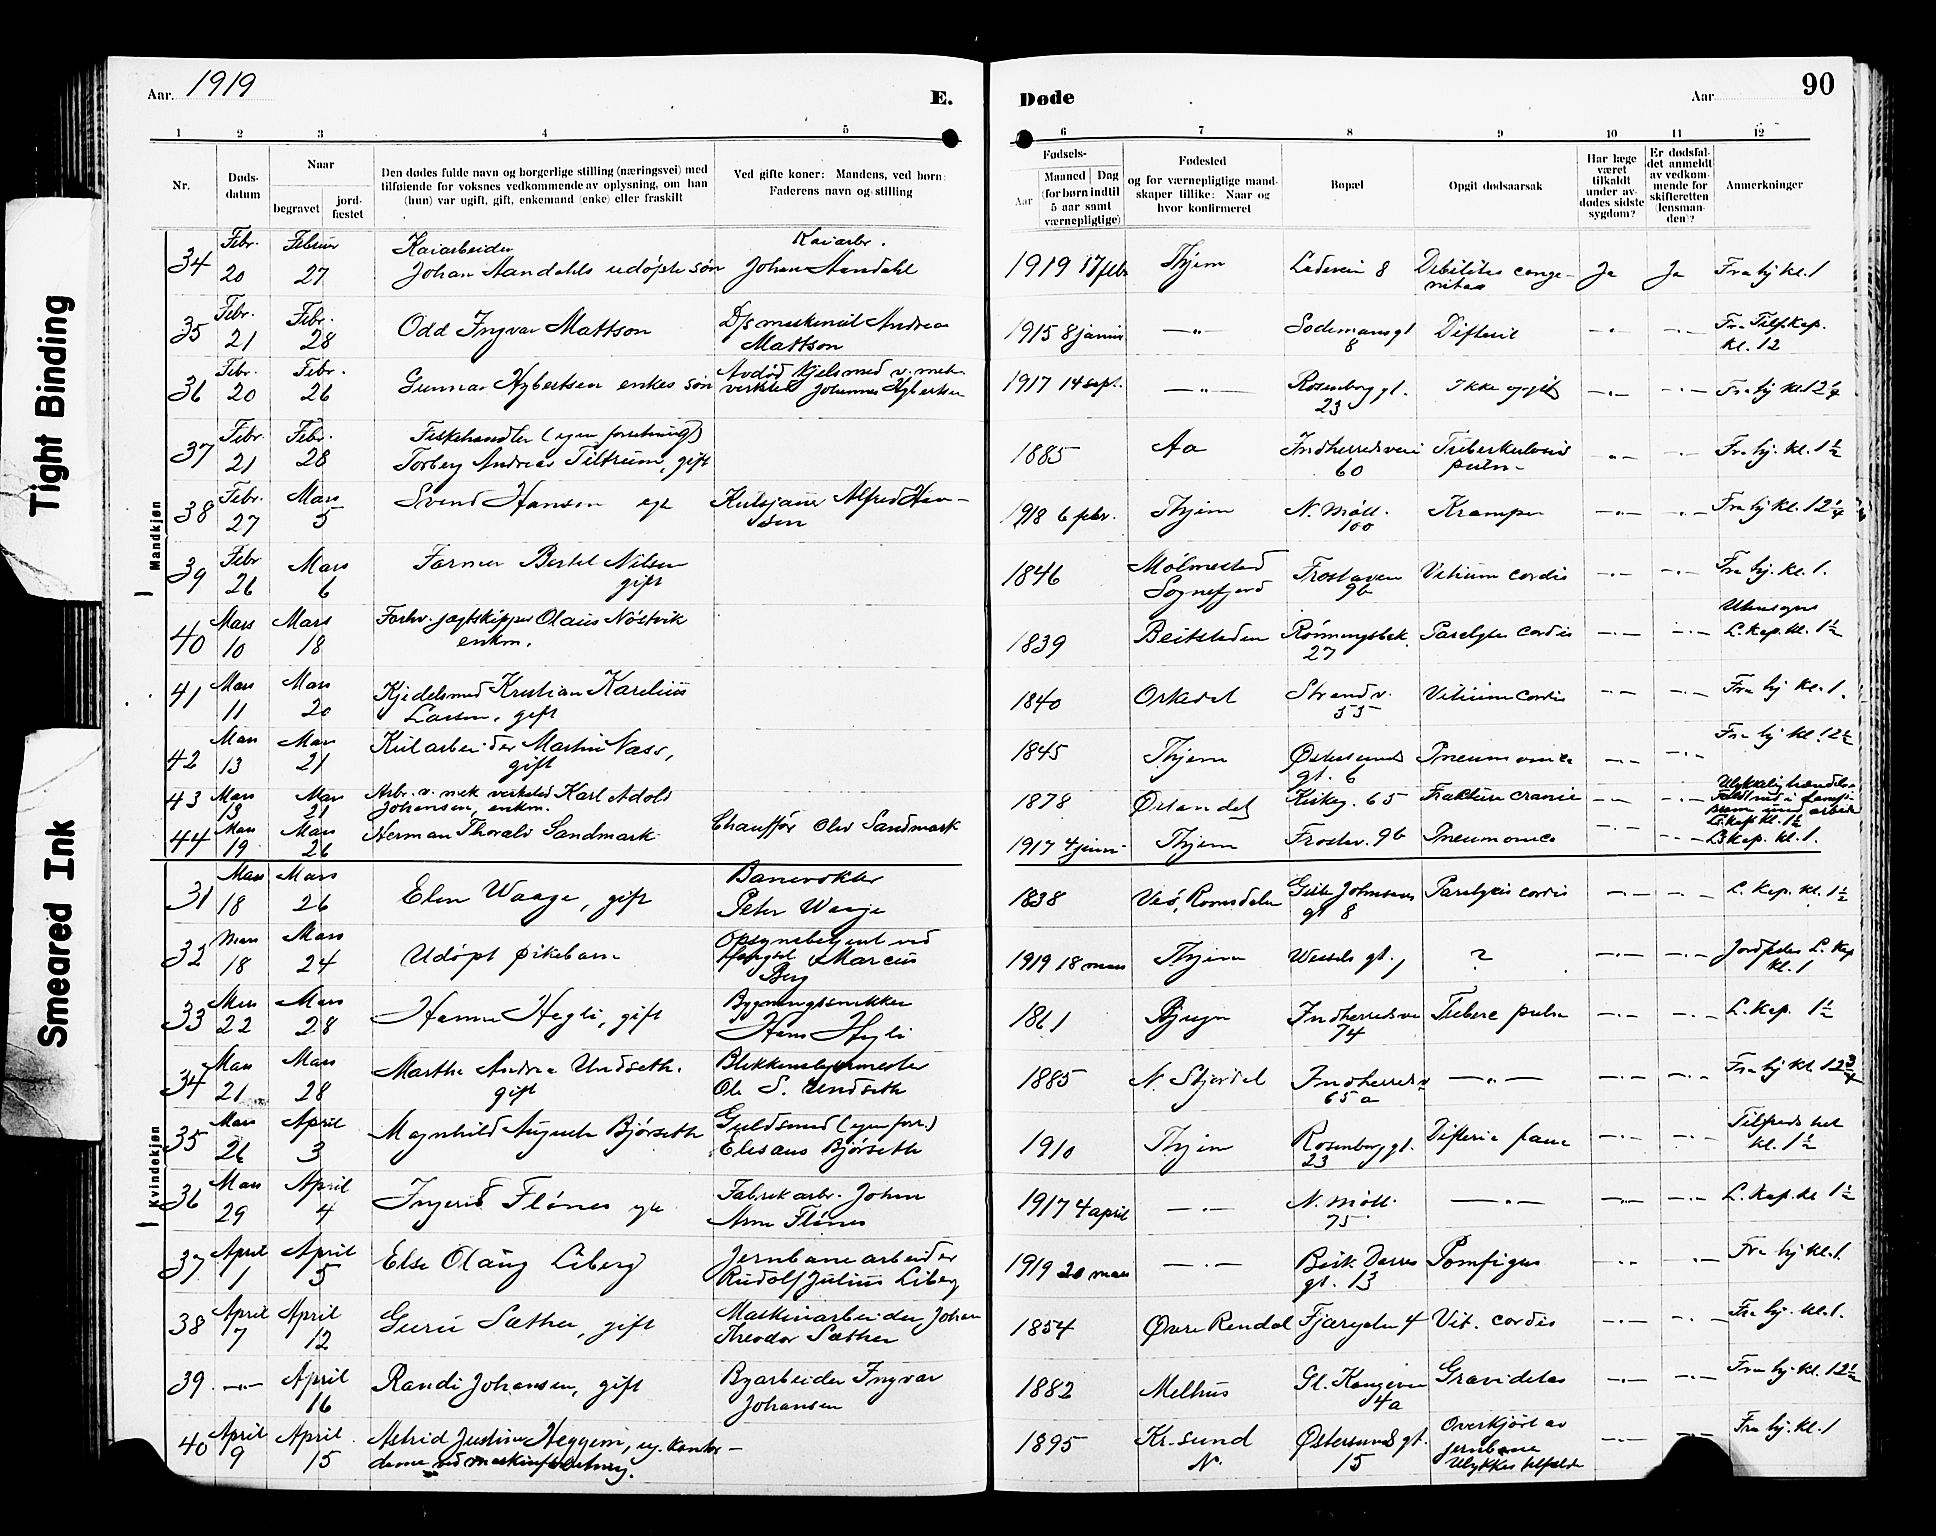 Tight Binding
Smeared Ink
Aar. 1919
E.
Døde
Aar
90
1 2 3 4 5 6 7 8 9 10 11 12
Nr.
Døds-
datum
Naar
begravet
jord-
fæstet
Den dødes fulde navn og borgerlige stilling (næringsvei) med
tilføiende for voksnes vedkommende av oplysning, om han
(hun) var ugift, gift, enkemand (enke) eller fraskilt
Ved gifte koner: Mandens, ved børn:
Faderens navn og stilling
Fødsels-
Aar
Maaned Dag
(for børn indtil
5 aar samt
værnepligtige)
Fødested
og for værnepligtige mand-
skaper tillike: Naar og
hvor konfirmeret
Bopæl
Opgit dødsaarsak
Har læge
været
tilkaldt
under av-
dødes sidste
sygdom?
Er dødsfal-
det anmeldt
av vedkom-
mende for
skifteretten
(lensman-
den)?
Anmerkninger
Mandkjøn
34 Febr. 20 Februar 27 Kaiarbeider
Johan Aandahls udøpte søn Kaiarb. Johan Aandahl 1919 17 febr Thjem Ladevein 8 Debilitas conge-
nitas Ja Ja Fra hj kl. 1
35 Febr. 21 Febr. 28 Odd Ingvar Mattson D/s maskinist Andreas
Mattson 1915 8 januar —"— Sodemansgt
8 Difterit —"— —"— Fra Tilf. kap.
kl. 12
36 Febr. 20 Febr. 26 Gunnar Hybertsen enkes søn Avdød kjelsmed v. mek.
verksted Johannes Hybertsen 1917 14 sept. —"— Rosenborg gt.
23 Ikke opgit —"— —"— Fra hj kl. 12 1/4
37 Febr. 21 Febr. 28 Fiskehandler (egen forretning)
Torberg Andreas Tiltrum, gift 1885 Aa Indherredsvei
60 Tuberkulosis
pulm. —"— —"— Fra hj. kl. 1 1/2
38 Febr. 27 Mars 5 Svend Hansen Alfred Han-
sen 1918 6 febr. Thjem N. Møll.
100 Kramper —"— —"— Fra hj kl. 12 1/4
39 Febr 26 Mars 6 Farmer Bertel Nilsen
gift 1846 Mølmestad
Sognefjord Frostaveien
9b Vitium cordis —"— —"— Fra hj. kl. 1.
40 Mars 10 Mars 18 Forhv. jagtskipper Olaus Nøstvik
enkm. 1839 Beitstaden Rønningsbak.
27 Paralysis cordis —"— —"— Utensogns
L. kap. kl. 1 1/2
41 Mars 11 Mars 20 Kjedelsmed Kristian Karelius
Larsen, gift 1840 Orkedal Strandv.
55 Vitium cordis —"— —"— Fra hj kl. 1.
42 Mars 13 Mars 21 Kularbeider Martin Næss,
gift 1845 Thjem Østersunds
gt. 6 Pneumonia —"— —"— Fra hj kl. 12 1/2
43 Mars 13 Mars 21 Arb. v. mek verksted Karl Adolf
Johansen, enkm. 1878 Ørlandet Kirkeg. 65 Fraktura cranie —"— —"— Ulykkelig hændelse
under arbeide
L. kap kl. 1 1/2
44 Mars 19 Mars 26 Herman Thoralv Sandmark Chauffør Olav Sandmark 1917 4 juni Thjem Frostav. 9b Pneumonia —"— —"— L. Kap. kl. 1.
Kvindekjøn
31 Mars 18 Mars 26 Elen Waage, gift Banevokter
Peter Waage 1838 Veø, Romsdalen Gisle Johnsens
gt 8 Paralysis cordis —"— —"— L. Kap. kl. 1 1/2
32 Mars 18 Mars 24 Udøpt pikebarn Opsynsbetjent ved
Marcus
Berg 1919 18 mars Thjem Wessels gt. ? —"— —"— Jordfestes L. Kap
kl. 1
33 Mars 22 Mars 28 Hanna Hegli, gift Bygningssnekker
Hans Hegli 1861 Bjugn Indherredsvei
74 Tuberc pulm —"— —"— L. Kap. 1 1/2
34 Mars 21 Mars 28 Marthe Andrea Undseth.
gift Blikkenslagermester
Ole S. Undseth 1885 N. Stjørdal Indherredsv
65a —"— —"— —"— Fra hj kl. 12 3/4
35 Mars 26 April 3 Magnhild Augusta Bjørseth Guldsmed (egen forr.)
Elesæus Bjørseth 1910 Thjem Rosenborg gt.
23 Difteria fauc —"— —"— Tilfreds het
kl. 1 1/2
36 Mars 29 April 4 Ingerid Flønes Fabrikarb. Johan
Arne Flønes 1917 4 april —"— N. Møll.
75 —"— —"— —"— L. Kap. kl 1 1/2
37 April 1 April 5 Else Olaug Liberg Jernbanearbeider
Rudolf Julius Liberg 1919 20 mars —"— Bisk Darres
gt. 13 Pomfigus —"— —"— Fra hj kl. 1.
38 April 7 April 12 Guru Sæther, gift Maskinarbeider Johan
Theodor Sæther 1854 Øvre Rendal Fjæregaten 4 Vit. cordis —"— —"— Fra hj. kl. 1.
39 —"— April 16 Randi Johansen, gift Byarbeider Ingvar
Johansen 1882 Melhus Gl. Kongevei
4a Graviditas —"— —"— Fra hj. kl. 12 1/2
40 April 9 April 15 Astrid Justine Heggem, ug. kontor-
dame ved maskinforretning. 1895 Kr.sund
N. Østersunds gt.
15 Overkjørt av
jernbane
Ulykkestilfælde —"— —"— Fra hj. kl. 1